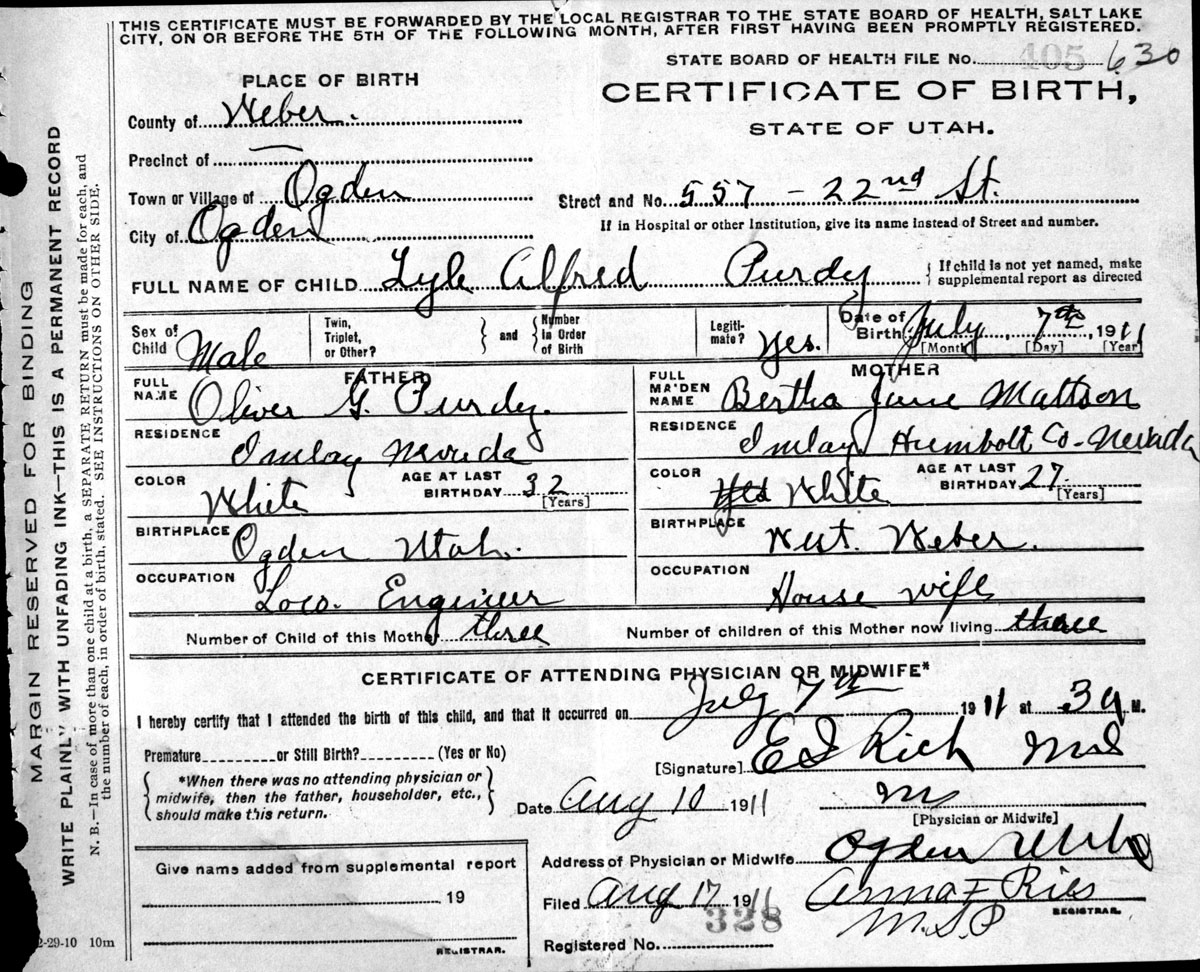 THIS CERTIFICATE MUST BE FORWARDED BY THE LOCAL REGISTRAR TO THE STATE BOARD OF HEALTH, SALT LAKE
CITY, ON OR BEFORE THE 5TH OF THE FOLLOWING MONTH, AFTER FIRST HAVING BEEN PROMPTLY REGISTERED.
STATE BOARD OF HEALTH FILE No. 405 630
PLACE OF BIRTH
CERTIFICATE OF BIRTH,
STATE OF UTAH.
County of Weber.
Precinct of —
Town or Village of Ogden
Street and No. 557 - 22nd St.
City of Ogden
If in Hospital or other Institution, give its name instead of Street and number.
FULL NAME OF CHILD Lyle Alfred Purdy
{ If child is not yet named, make
supplemental report as directed
Sex of
Child Male
Twin,
Triplet,
or Other?
} and {
Number
in Order
of Birth
Legiti-
mate? Yes.
Date of
Birth July 7th 1911
[Month] [Day] [Year]
FATHER
FULL
NAME Oliver G. Purdy.
RESIDENCE
Imlay Nevada
COLOR White
AGE AT LAST
BIRTHDAY 32
[Years]
BIRTHPLACE Ogden Utah.
OCCUPATION
Loco. Engineer
MOTHER
FULL
MAIDEN
NAME Bertha Jane Mattson
RESIDENCE
Imlay Humbolt Co. Nevada
COLOR White
AGE AT LAST
BIRTHDAY 27
[Years]
BIRTHPLACE
West. Weber.
OCCUPATION
House wife
Number of Child of this Mother three
Number of children of this Mother now living three
CERTIFICATE OF ATTENDING PHYSICIAN OR MIDWIFE*
I hereby certify that I attended the birth of this child, and that it occurred on July 7th 1911 at 3 a M.
Premature or Still Birth? (Yes or No)
[Signature] E I Rich Md
{ *When there was no attending physician or
midwife, then the father, householder, etc.,
should make this return. }
Date Aug 10 1911
[Physician or Midwife]
Address of Physician or Midwife Ogden Utah
Give name added from supplemental report
19
REGISTRAR.
Filed Aug 17 1911
Anna F Ries
REGISTRAR.
328
Registered No.
MARGIN RESERVED FOR BINDING
WRITE PLAINLY WITH UNFADING INK—THIS IS A PERMANENT RECORD
N. B.—In case of more than one child at a birth, a SEPARATE RETURN must be made for each, and
the number of each, in order of birth, stated. SEE INSTRUCTIONS ON OTHER SIDE.
2-29-10 10m